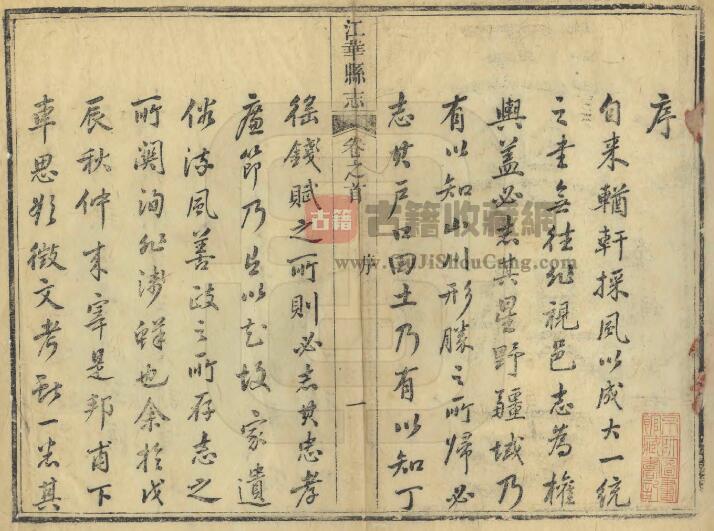 序
自来輶軒採風以成大一統
之書無往非視邑志為權
輿盖必志其星野疆域乃
有以知山川形勝之所歸必
志其戶口田土乃有以知丁
江華縣志
卷之首
序
一
徭錢賦之所則必志其忠孝
廉節乃有以知故家遺
俗流風善政之所存志之
所關洵非淺鮮也余於戊
辰秋仲来宰是邦甫下
車思欲徵文考獻一悉其
古籍
古籍收藏網
www.GuJiShouCang.com